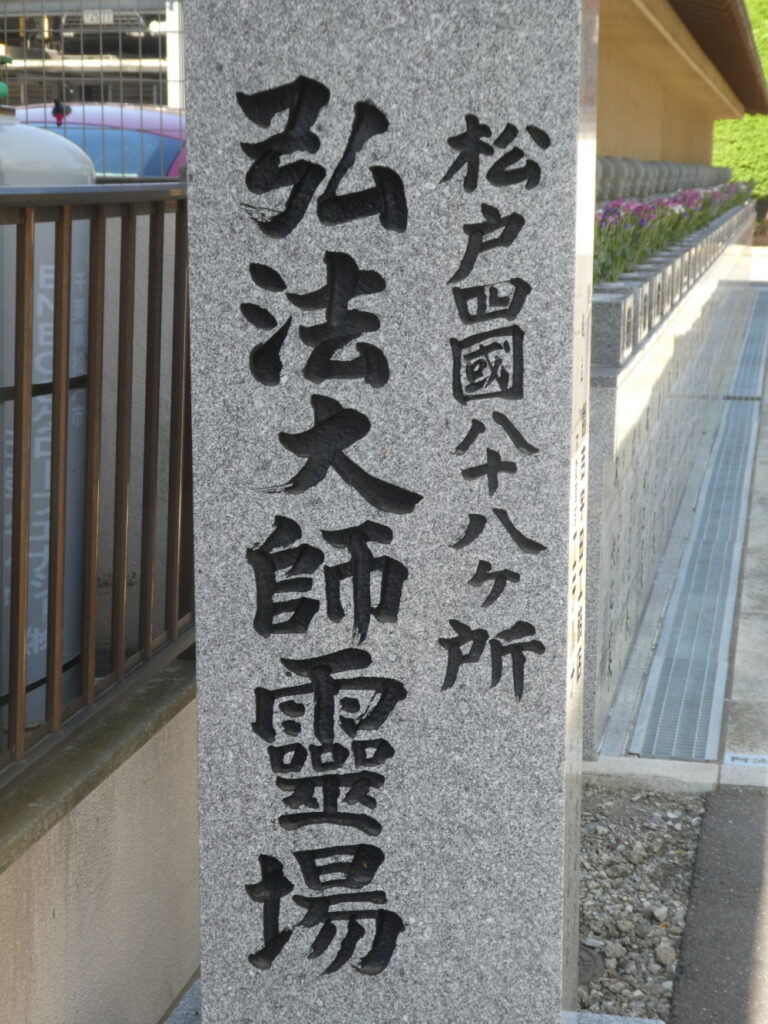 松戸四國八十八ヶ所
弘法大師靈場